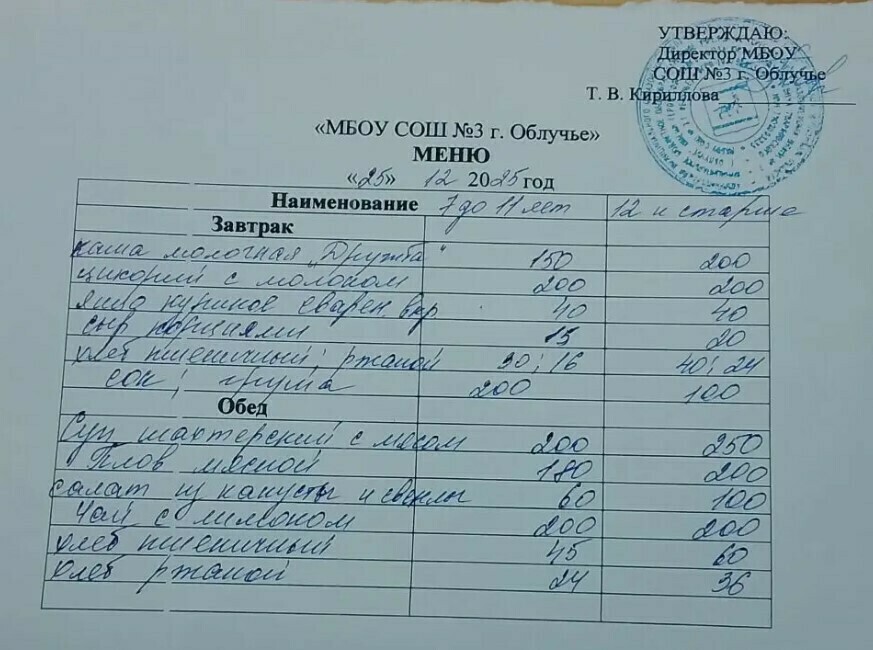 УТВЕРЖДАЮ:
Директор МБОУ
СОШ №3 г. Облучье
Т. В. Кириллова
«МБОУ СОШ №3 г. Облучье»
МЕНЮ
«25» 12 2025 год
Наименование 7 до 11 лет 12 и старше
Завтрак
каша молочная "Дружба" 150 200
цикорий с молоком 200 200
яйцо куриное сварен вкр 40 40
сыр порциями 15 20
хлеб пшеничный; ржаной 30; 16 40; 24
сок; груша 200 100
Обед
Суп шахтерский с мясом 200 250
Плов мясной 180 200
салат из капусты и свеклы 60 100
Чай с лимоном 200 200
хлеб пшеничный 45 60
хлеб ржаной 24 36